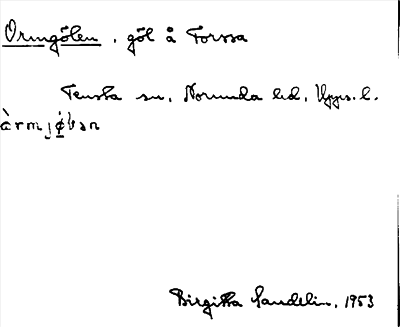 Ormgölen, göl å Forssa
Tensta sn, Norunda hd, Upps. l.
Birgitta Sandelin, 1953